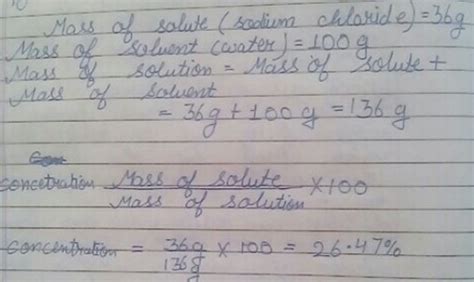 Mass of solute (sodium chloride) = 36g
Mass of solvent (water) = 100 g
Mass of solution = Mass of solute +
Mass of solvent
= 36g + 100 g = 136 g
Con
Concetration Mass of solute × 100
Mass of solution
Concentration = 36g × 100 = 26.47%
136g